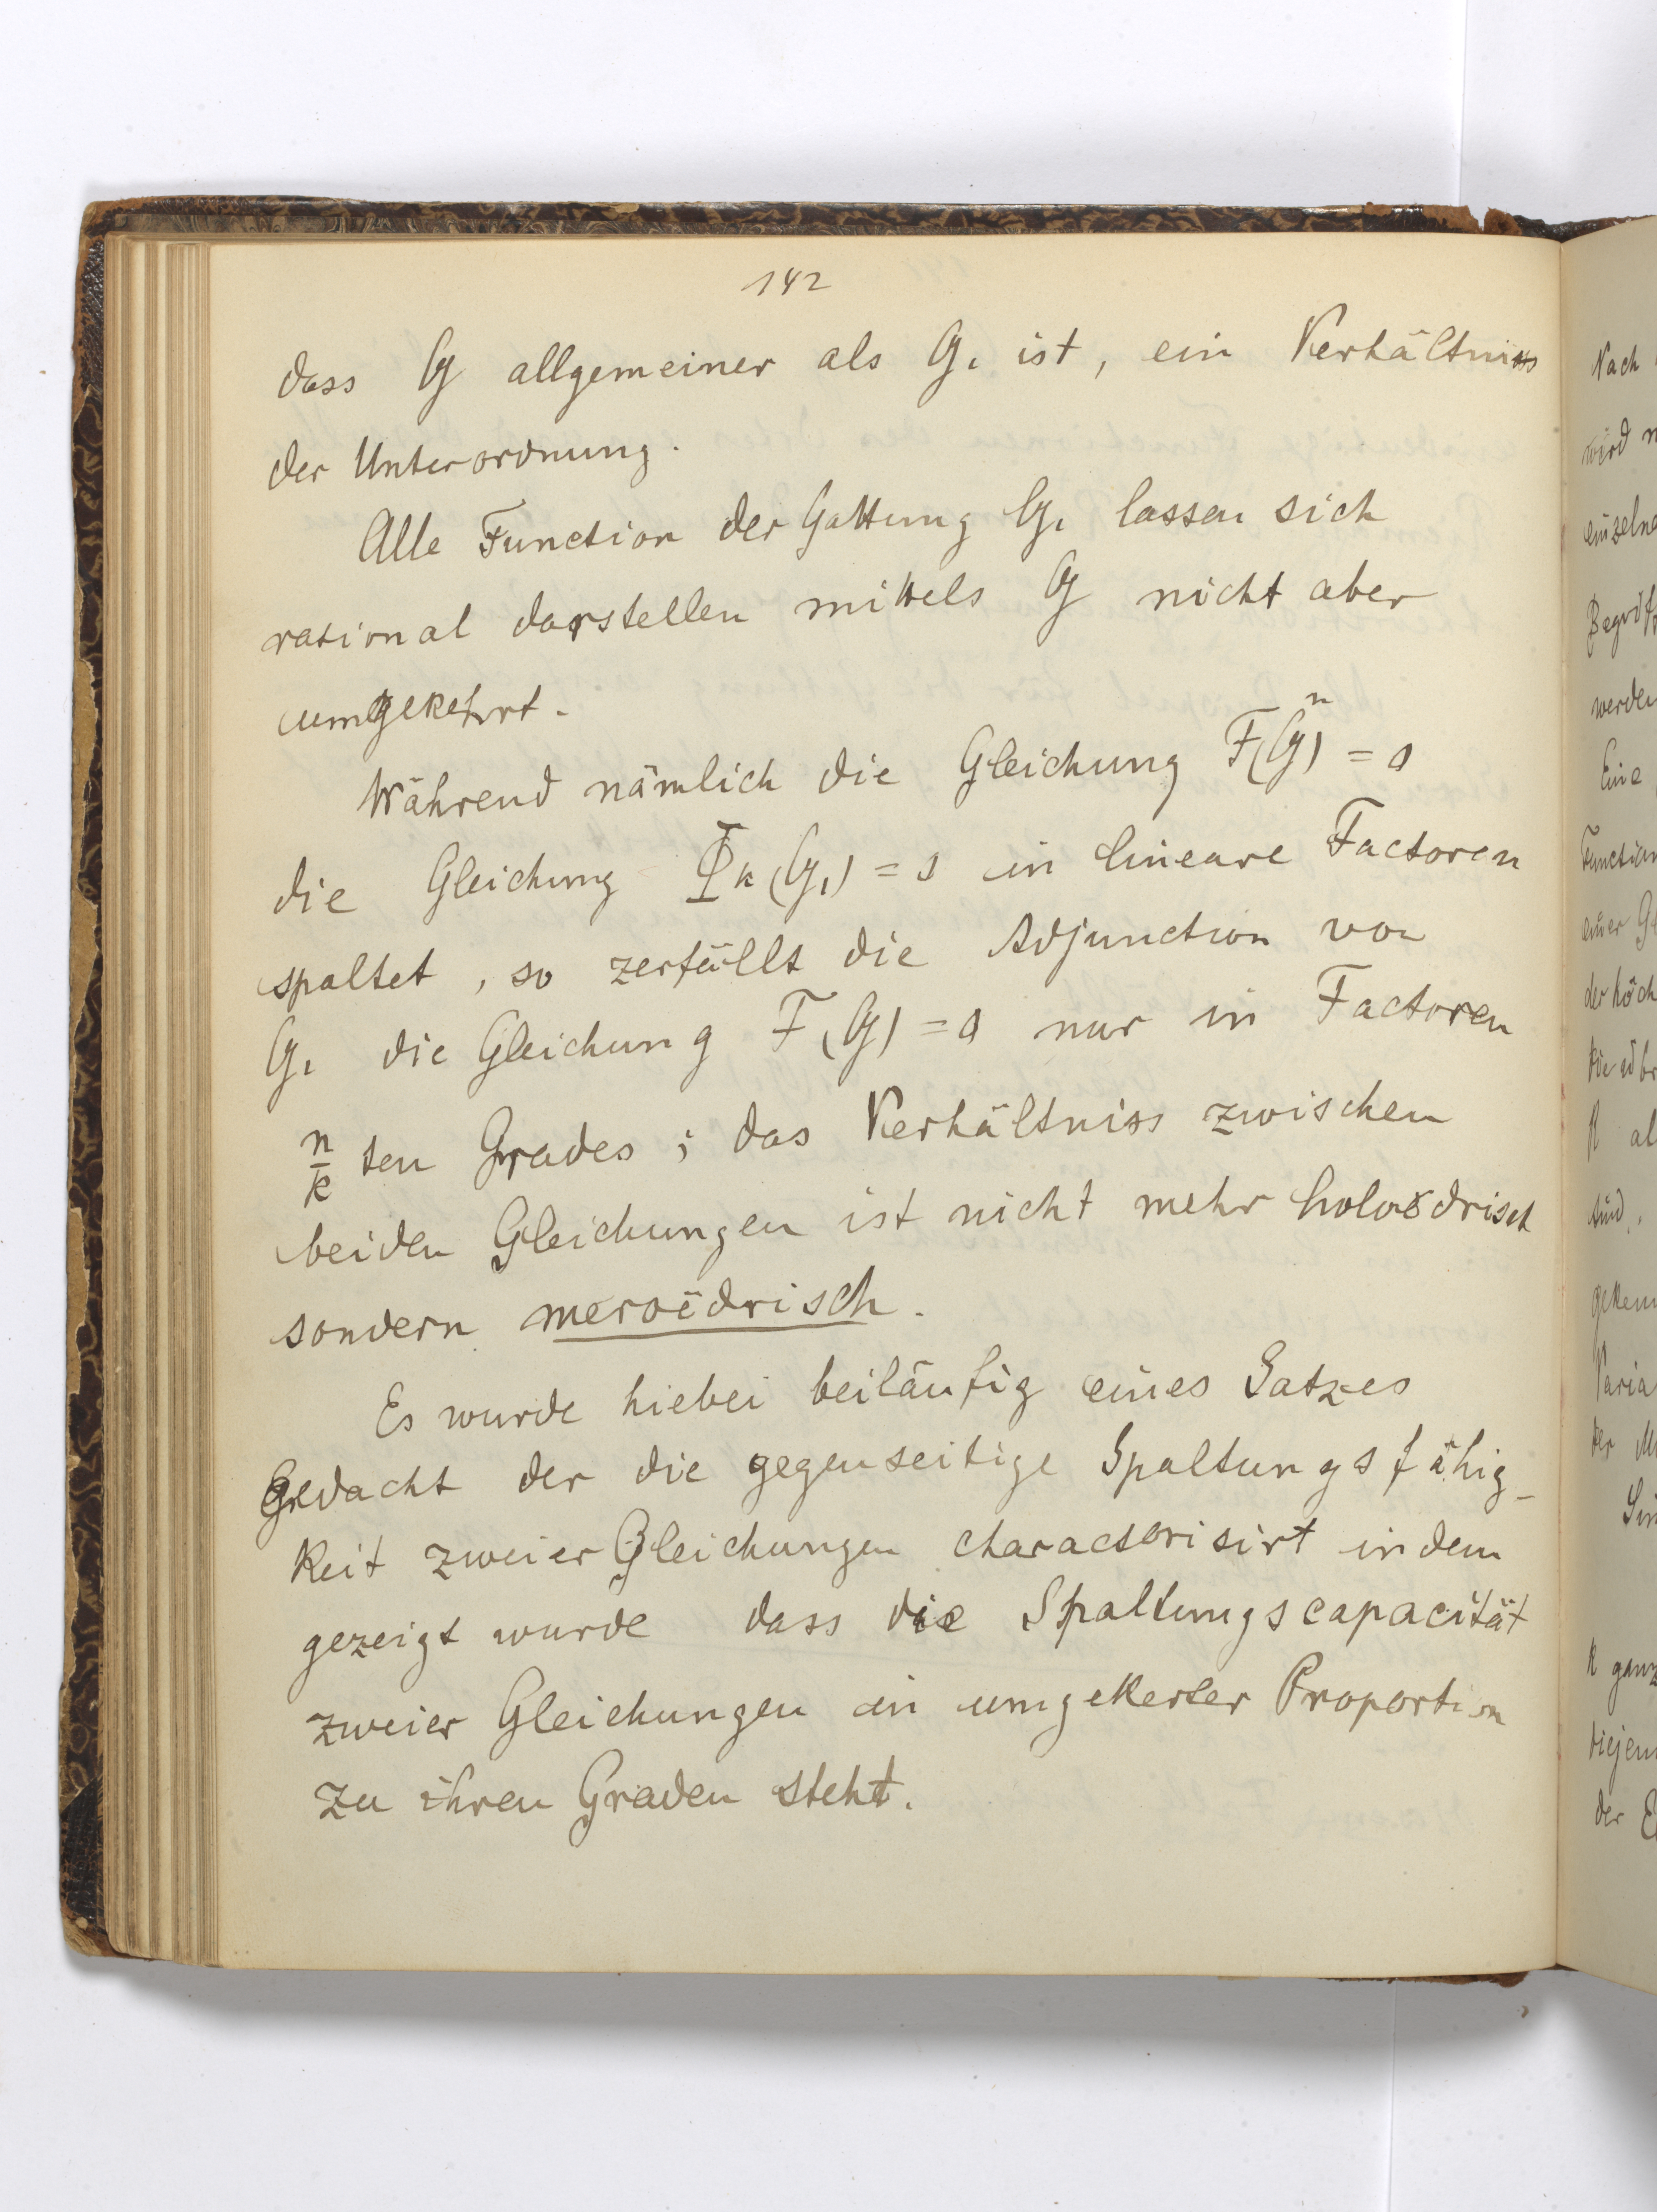 142
dass G allgemeiner als G₁ ist, ein Verhältniss
der Unterordnung.
Alle Function der Gattung G₁ lassen sich
rational darstellen mittels G nicht aber
umgekehrt.
Während nämlich die Gleichung F(G)ⁿ = 0
die Gleichung Φk(G₁) = 0 in lineare Factoren
spaltet, so zerfällt die Adjunction von
G₁ die Gleichung F(G) = 0 nur in Factoren
n/k ten Grades; das Verhältniss zwischen
beiden Gleichungen ist nicht mehr holoedrisch
sondern meroëdrisch.
Es wurde hiebei beiläufig eines Satzes
Gedacht der die gegenseitige Spaltungsfähig-
keit zweier Gleichungen characterisirt indem
gezeigt wurde dass die Spaltungscapacität
zweier Gleichungen in umgekerter Proportion
zu ihren Graden steht.
Nach
wird
werden
Eine
Function
einer
der
k
al
sind,
der
k ganz
der